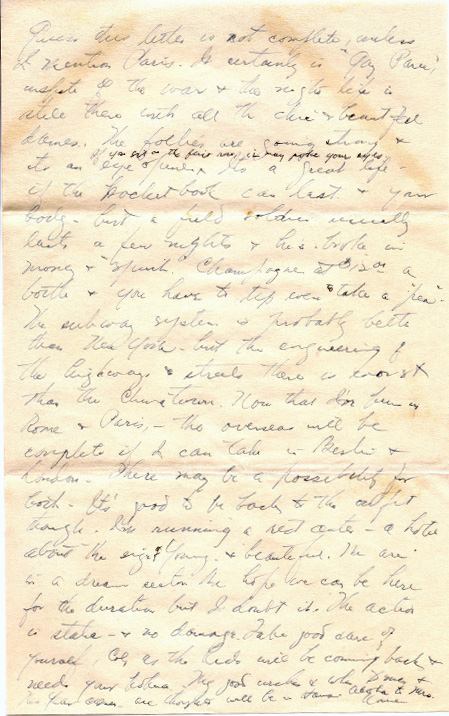 Guess this letter is not complete, unless
I mention Paris. It certainly is "Gay Paris",
inspite of the war & the night life is
still there with all the chic & beautiful
dames. The follies are going strong &
If you sit in the first row, it may poke your eyes,
its an eye opener. Its a great life -
if the pocketbook can last & your
body - but a field soldier usually
lasts a few nights & he's broke in
money & "spirit." Champagne at $12.00 a
bottle & you have to tip even to take a "pea".
The subway system is probably better
than New York - but the engineering of
the highways & streets there is worst
than the Chinatown. Now that I've been in
Rome & Paris, - the overseas will be
complete if I can take in Berlin &
London. There may be a possibility for
both - It's good to be back to the outfit
though. I'm running a rest center - a hotel
about the size of Young. & beautiful. We are
in a dream sector. We hope we can be here
for the duration but I doubt it. The action
is static - & no damage. Take good care of
yourself, as the kids will be coming back &
needs your My good wishes &
thoughts will be Aloha to Mrs.